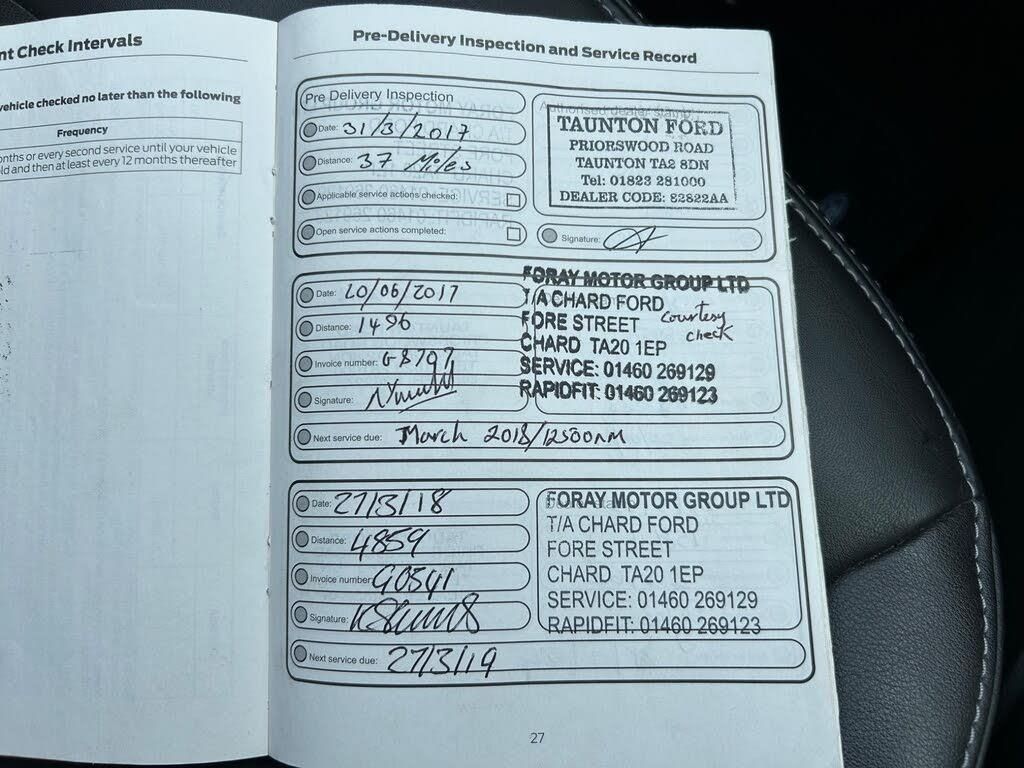 nt Check Intervals
vehicle checked no later than the following
Frequency
onths or every second service until your vehicle
ld and then at least every 12 months thereafter
Pre-Delivery Inspection and Service Record
Pre Delivery Inspection
Date: 31/3/2017
Distance: 37 Miles
Applicable service actions checked:
Open service actions completed:
Authorised dealer stamp
TAUNTON FORD
PRIORSWOOD ROAD
TAUNTON TA2 8DN
Tel: 01823 281000
DEALER CODE: 82822AA
Signature:
Date: 20/06/2017
Distance: 1496
Invoice number: G8707
Signature:
FORAY MOTOR GROUP LTD
T/A CHARD FORD
FORE STREET
CHARD TA20 1EP
SERVICE: 01460 269129
RAPIDFIT: 01460 269123
courtesy
check
Next service due: March 2018/12500AM
Date: 27/3/18
Distance: 4859
Invoice number: G0541
Signature:
FORAY MOTOR GROUP LTD
T/A CHARD FORD
FORE STREET
CHARD TA20 1EP
SERVICE: 01460 269129
RAPIDFIT: 01460 269123
Next service due: 27/3/19
27